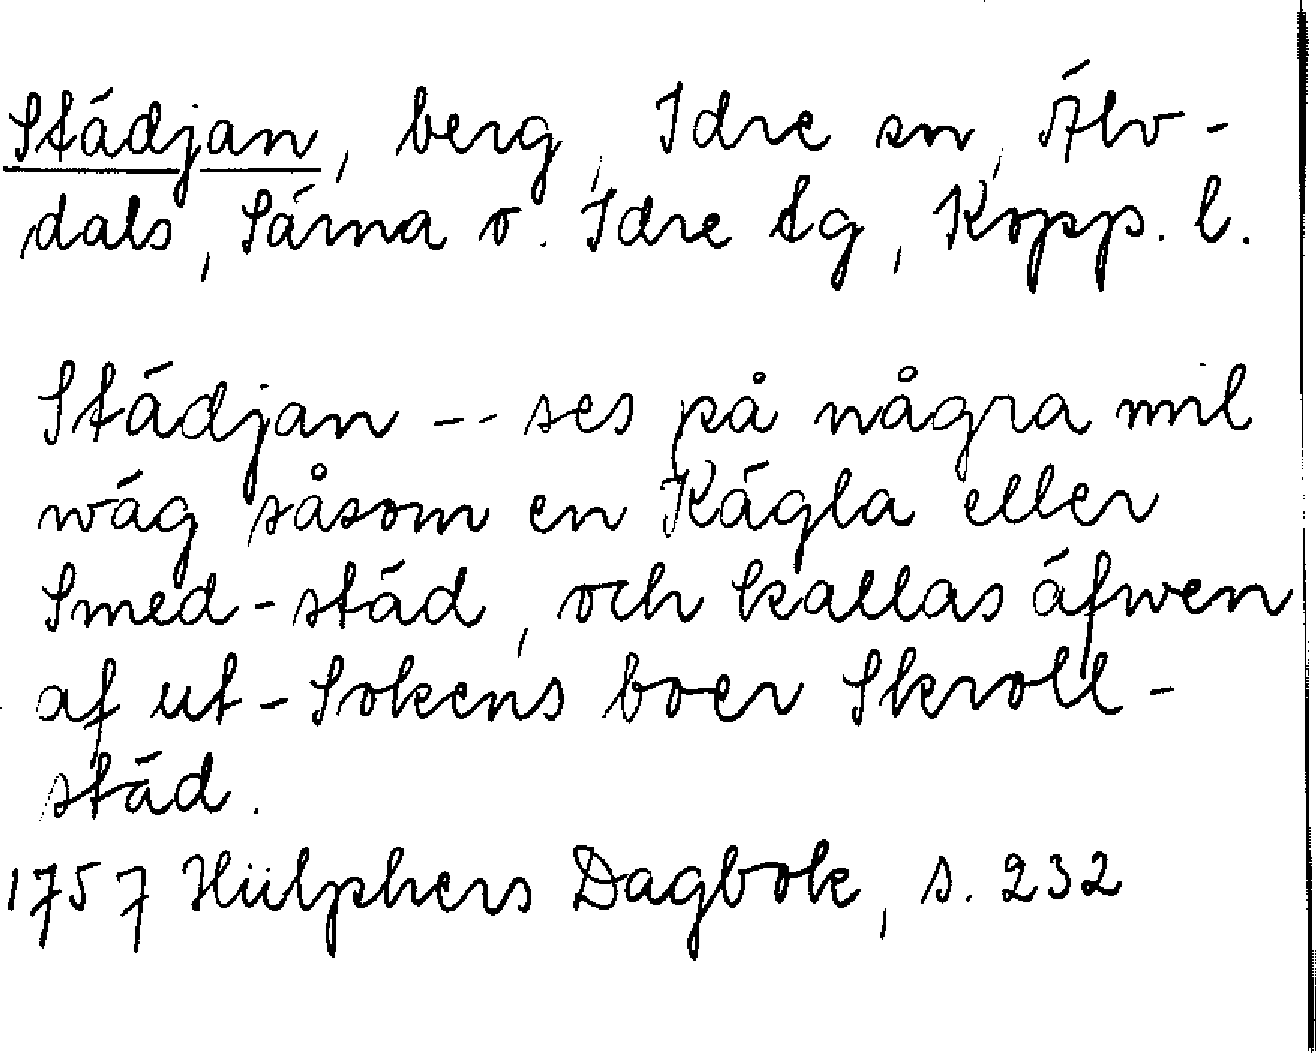 Städjan, berg, Idre sn, Älv-
dals, Särna o. Idre tg, Kopp. l.
Städjan -- ses på några mil
wäg såsom en Kägla eller
Smed-städ, och kallas äfwen
af ut-Sokens boer Skroll-
städ.
1757 Hülphers Dagbok, s. 232